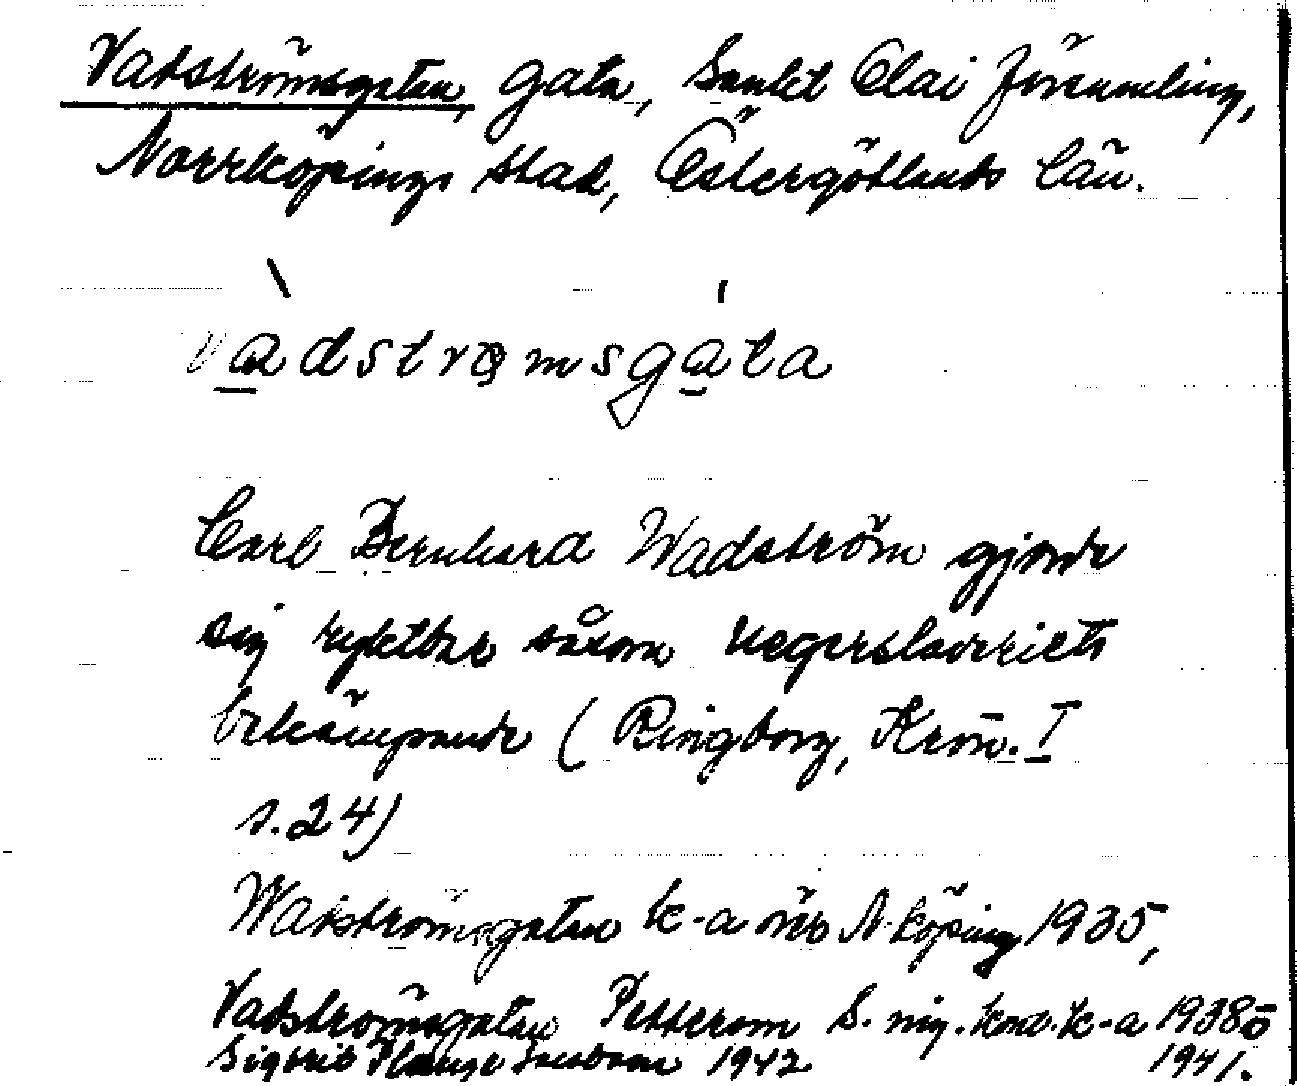 Vadströmsgatan, gata, Sankt Olai församling,
Norrköpings stad, Östergötlands län.
vadstrømsgata
Carl Bernhard Wadström gjorde
sig ryktbar såsom negerslaveriets
bekämpande (Ringborg, Krön. I
s. 24)
Wadströmsgatan k-a N-köping 1935,
Vadströmsgatan Pettersson S. k-a 1938
1942 1941.